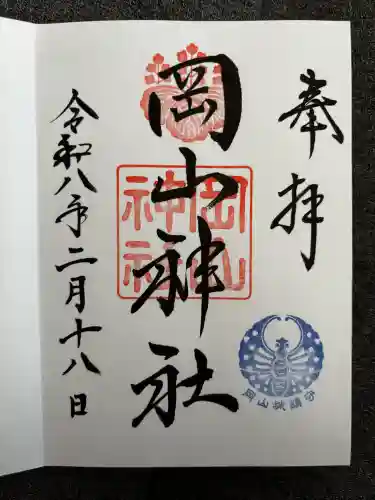 奉拝
岡山神社
岡山神社
岡山城鎮守
令和八年二月十八日